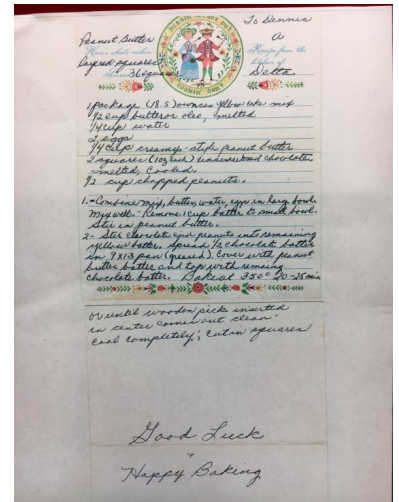 Kissin' wears out
cookin' don't
To Dennis
Peanut Butter
Here's what's cookin'
layered squares
36 squares
A
Recipe from the
kitchen of
Detta
1 package (18.5) ounces yellow cake mix
1/2 cup butter or oleo, melted
1/4 cup water
2 eggs
1/4 cup creamy-style peanut butter
2 squares (1oz each) unsweetened chocolate
melted, cooled.
1/2 cup chopped peanuts.
1.- Combine mix, butter, water, eggs in large bowl
Mix well. Remove 1 cup batter to small bowl.
Stir in peanut butter.
2- Stir chocolate and peanuts into remaining
yellow batter. Spread 1/2 chocolate batter
in 9X13 pan (greased). Cover with peanut
butter batter and top with remaing
chocolate batter. Bake at 350° 20-25 min
or until wooden pick inserted
in center comes out clean.
Cool completely; cut in squares
Good Luck
"
Happy Baking